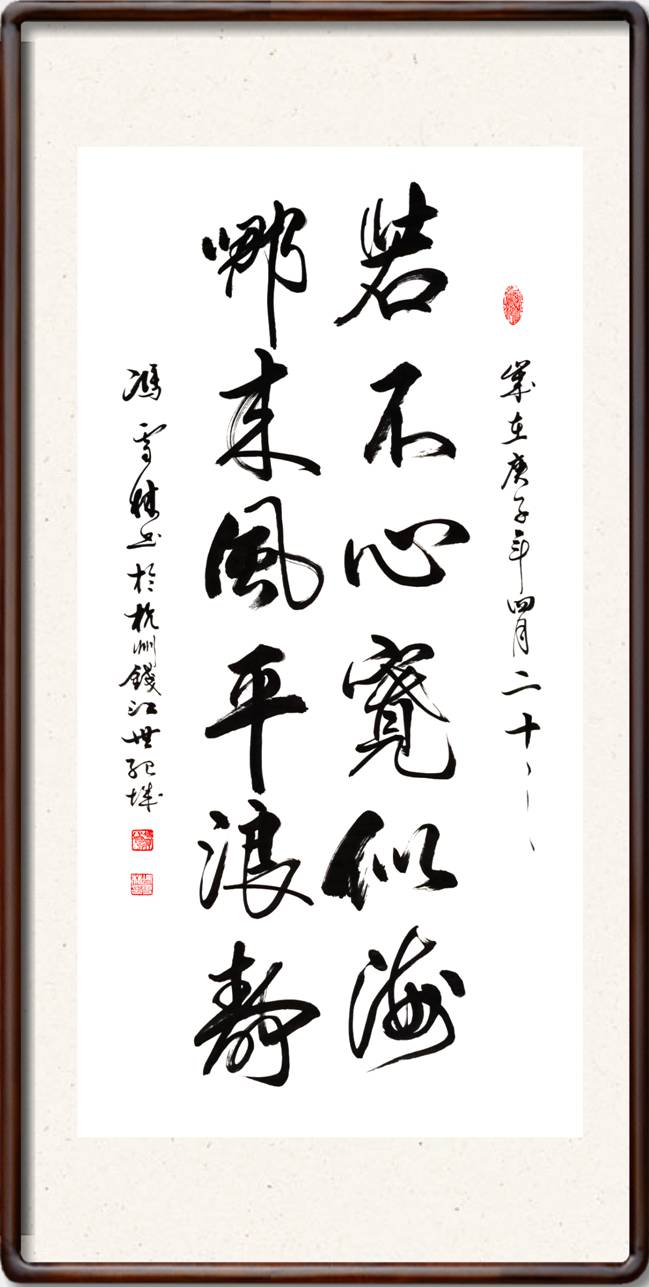 歲在庚子年四月二十八日
若不心寬似海
哪來風平浪靜
馮雪林書於杭州錢江世紀城